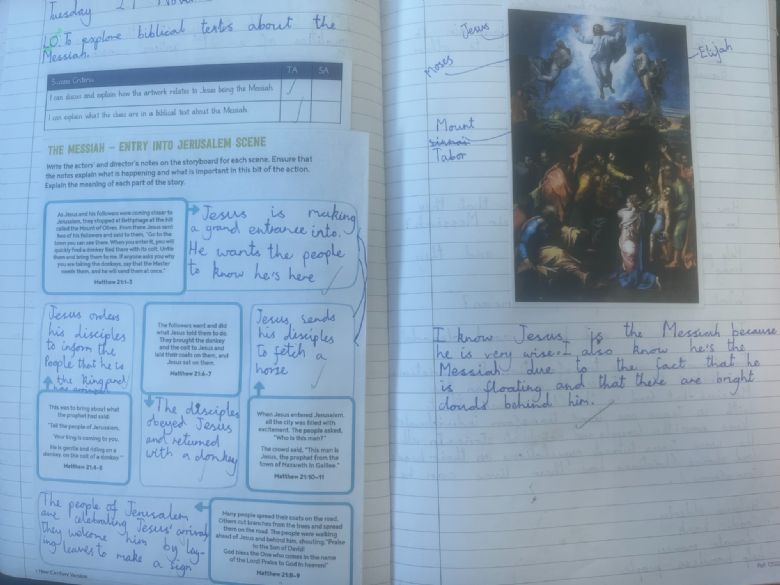 Tuesday 21
LO: To explore biblical texts about the
Messiah.
Success Criteria
TA
SA
I can discuss and explain how the artwork relates to Jesus being the Messiah
I can explain what the clues are in a biblical text about the Messiah.
THE MESSIAH – ENTRY INTO JERUSALEM SCENE
Write the actors' and director's notes on the storyboard for each scene. Ensure that
the notes explain what is happening and what is important in this bit of the action.
Explain the meaning of each part of the story.
As Jesus and his followers were coming closer to
Jerusalem, they stopped at Bethphage at the hill
called the Mount of Olives. From there Jesus sent
two of his followers and said to them, "Go to the
town you can see there. When you enter it, you will
quickly find a donkey tied there with its colt. Untie
them and bring them to me. If anyone asks you why
you are taking the donkeys, say that the Master
needs them, and he will send them at once."
Matthew 21:1-3
Jesus is making
a grand entrance into.
He wants the people
to know he's here
Jesus orders
his disciples
to inform the
People that he is
the King and
has arrived
The followers went and did
what Jesus told them to do.
They brought the donkey
and the colt to Jesus and
laid their coats on them, and
Jesus sat on them.
Matthew 21:6-7
Jesus sends
his disciples
to fetch a
horse
This was to bring about what
the prophet had said:
"Tell the people of Jerusalem,
Your king is coming to you.
He is gentle and riding on a
donkey, on the colt of a donkey."
Matthew 21:4-5
The disciples
obeyed Jesus
and returned
with a donkey
When Jesus entered Jerusalem,
all the city was filled with
excitement. The people asked,
"Who is this man?"
The crowd said, "This man is
Jesus, the prophet from the
town of Nazareth in Galilee."
Matthew 21:10-11
The people of Jerusalem
are celebrating Jesus' arrival
they welcome him by lay-
ing leaves to make a sign
Many people spread their coats on the road.
Others cut branches from the trees and spread
them on the road. The people were walking
ahead of Jesus and behind him, shouting, "Praise
to the Son of David!
God bless the One who comes in the name
of the Lord! Praise to God in heaven!"
Matthew 21:8-9
New Century Version
Jesus
Moses
Elijah
Mount
sinnai
Tabor
I know Jesus is the Messiah because
he is very wise. I also know he's the
Messiah due to the fact that he
is floating and that there are bright
clouds behind him.